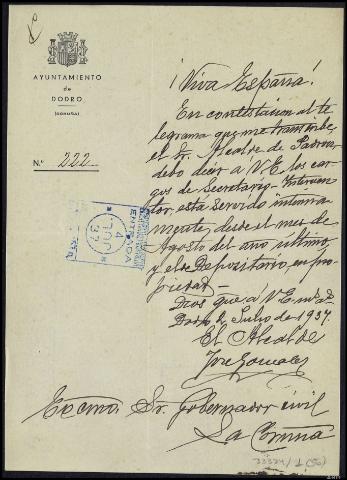 AYUNTAMIENTO
de
DODRO
(CORUÑA)
N.º 222
¡Viva España!
En contestación al te
legrama que me transcribe
el Sr. Alcalde de Padrón
debo decir a V.E. los car
gos de Secretario-Interven
tor, está servido interina
mente, desde el mes de
Agosto del año último,
y el de Depositario, en pro
piedad.
Dios que a V.E. m. a.
Dodro 2 Julio de 1937.
El Alcalde
José González
ENTRADA
4 JUL 37
Excmo. Sr. Gobernador civil
La Coruña